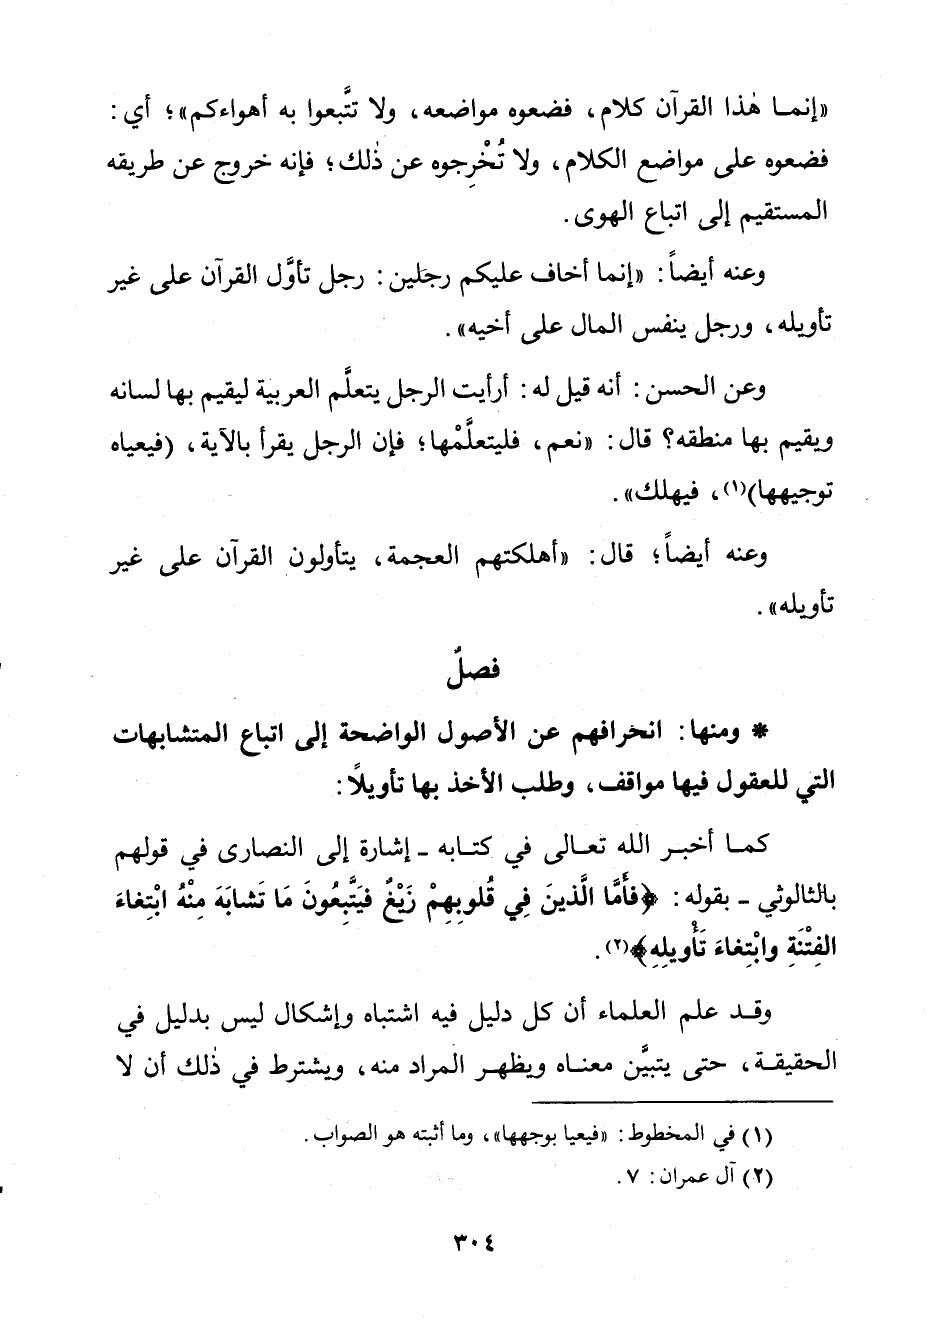 «إنمـا هٰذا القرآن كلام، فضعوه مواضعه، ولا تتَّبعوا به أهواءكم»؛ أي:
فضعوه على مواضع الكلام، ولا تُخْرِجوه عن ذٰلك؛ فإنه خروج عن طريقه
المستقيم إلى اتباع الهوى.
وعنه أيضاً: «إنما أخاف عليكم رجلين: رجل تأوَّل القرآن على غير
تأويله، ورجل ينفس المال على أخيه».
وعن الحسن: أنه قيل له: أرأيت الرجل يتعلَّم العربية ليقيم بها لسانه
ويقيم بها منطقه؟ قال: «نعم، فليتعلَّمْها؛ فإن الرجل يقرأ بالآية، (فيعياه
توجيهها)(١)، فيهلك».
وعنه أيضاً؛ قال: «أهلكتهم العجمة، يتأولون القرآن على غير
تأويله».
فصلٌ
* ومنها: انحرافهم عن الأصول الواضحة إلى اتباع المتشابهات
التي للعقول فيها مواقف، وطلب الأخذ بها تأويلاً:
كمـا أخبـر الله تعـالى في كتـابه ـ إشارة إلى النصارى في قولهم
بالثالوثي ـ بقوله: ﴿فأَمَّا الَّذينَ في قُلوبِهِمْ زَيْغٌ فيَتَّبِعُونَ مَا تَشابَهَ مِنْهُ ابْتِغاءَ
الفِتْنَةِ وابْتِغاءَ تَأْويلِهِ﴾(٢).
وقـد علم العلماء أن كل دليل فيه اشتباه وإشكال ليس بدليل في
الحقيقـة، حتى يتبيَّن معنـاه ويظهـر المراد منه، ويشترط في ذٰلك أن لا
(١) في المخطوط: «فيعيا بوجهها»، وما أثبته هو الصواب.
(٢) آل عمران: ٧.
٣٠٤